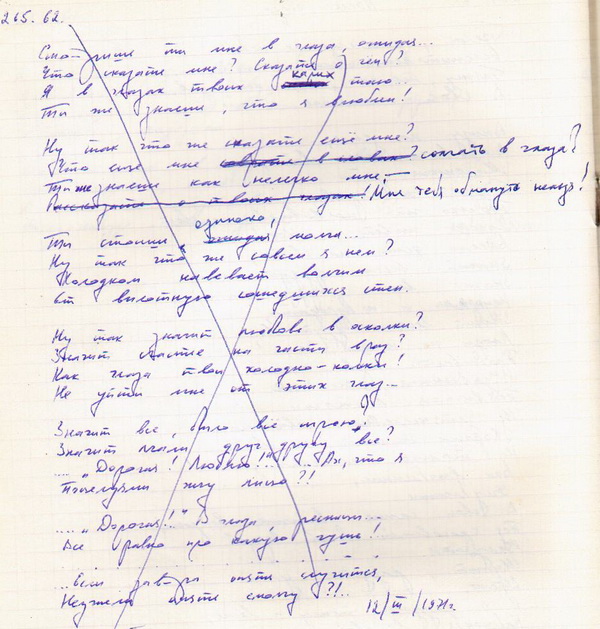 265. 62.
Смотришь ты мне в глаза, ожидая...
Что сказать мне? Сказать о чём?
каких
Я в глазах твоих таю...
Ты же знаешь, что я влюблён!
Ну так что же сказать ещё мне?
Что ещё мне солгать в глаза?
Ты же знаешь как нелегко мне,
Мне тебя обмануть нельзя!
одиноко,
Ты стоишь молча...
Ну так что же совсем я нем?
Холодком навевает волчим
От вплотную сошедшихся стен.
Ну так значит любовь в осколки?
Значит счастье на части врозь?
Как глаза твои холодно-колки!
Не уйти мне от этих глаз...
Значит всё, было всё игрою?
Значит лгали друг другу всё?
.... "Дорогая! Люблю!.." ... Ах, что я
Поцелуями жгу лицо?!
.... "Дорогая!.." В глаза, ресницы...
Всё равно про какую чушь!
...Если завтра опять случится,
Неужели опять смолчу?!..
12/III/1971г.